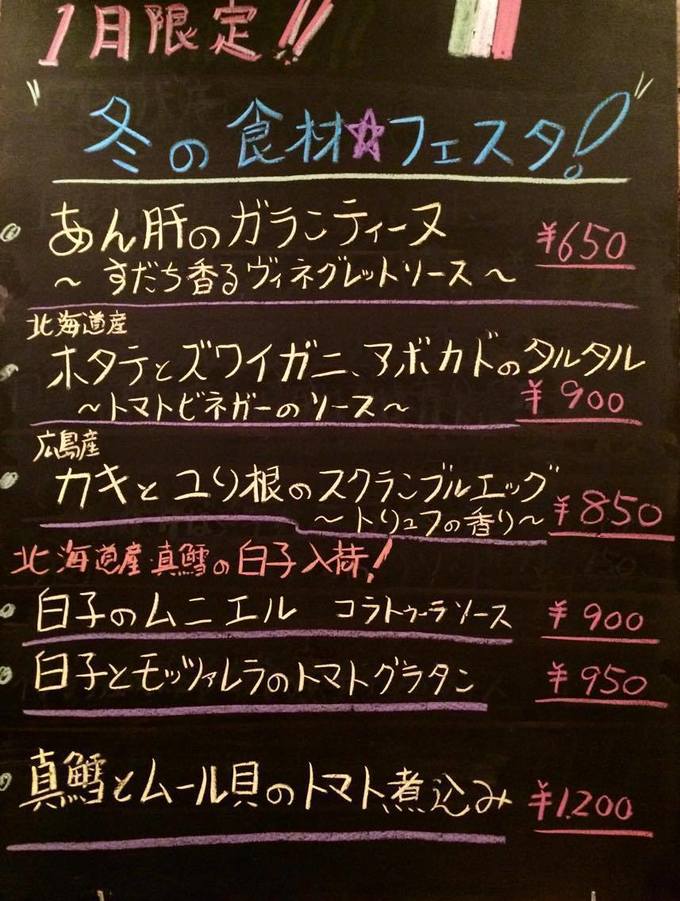 1月限定!!
"冬の食材☆フェスタ!"
あん肝のガランティーヌ ¥650
～すだち香るヴィネグレットソース～
北海道産
ホタテとズワイガニ、アボカドのタルタル
～トマトビネガーのソース～ ¥900
広島産
カキとユリ根のスクランブルエッグ
～トリュフの香り～ ¥850
北海道産真鱈の白子入荷!
白子のムニエル コラトゥーラソース ¥900
白子とモッツァレラのトマトグラタン ¥950
真鱈とムール貝のトマト煮込み ¥1,200